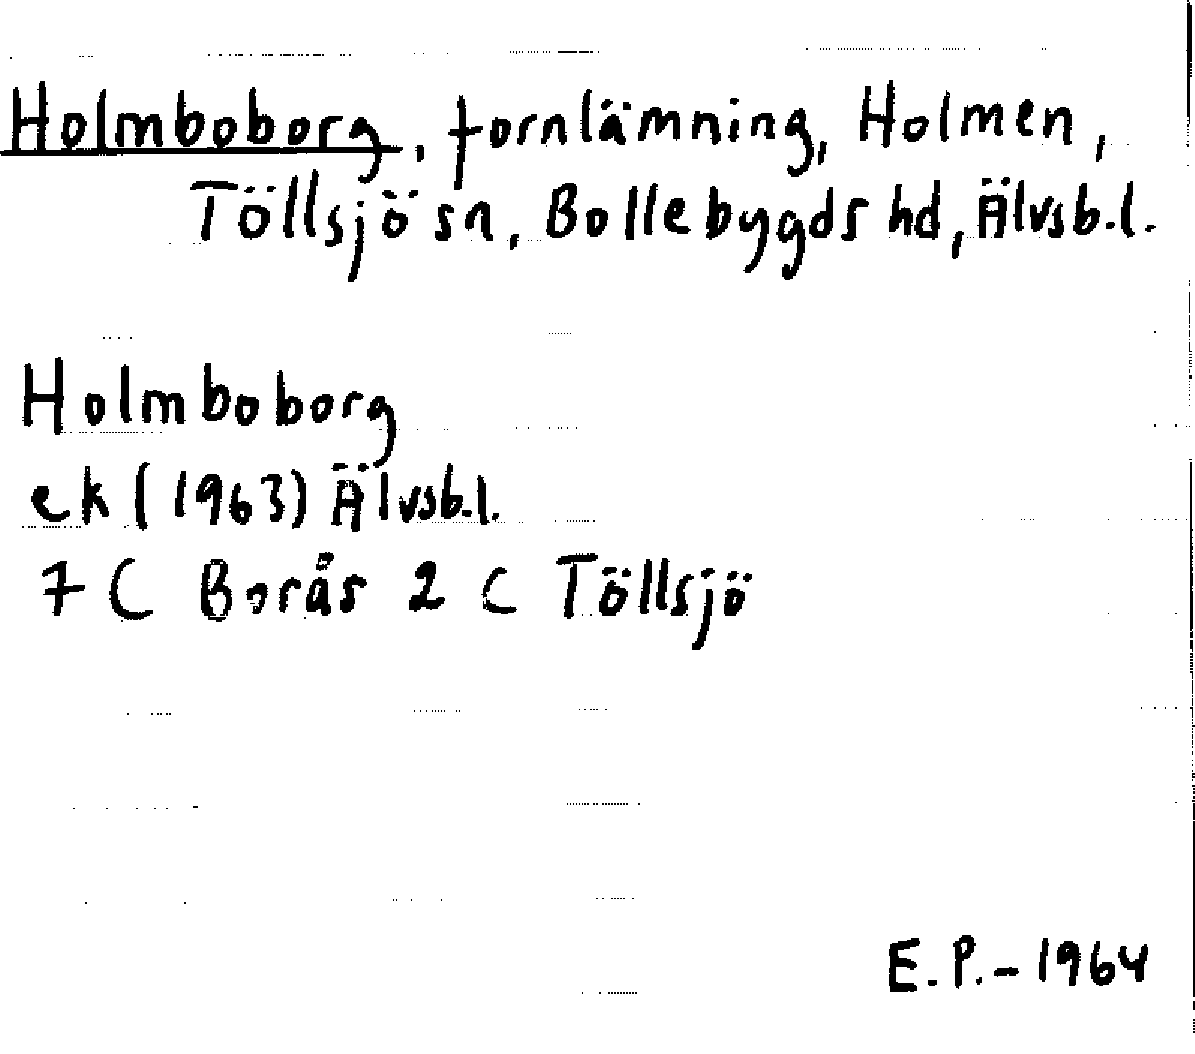 Holmboborg, fornlämning, Holmen,
Töllsjö sn, Bollebygds hd, Älvsb.l.
Holmboborg
ek (1963) Älvsb.l.
7 C Borås 2 c Töllsjö
E.P.-1964